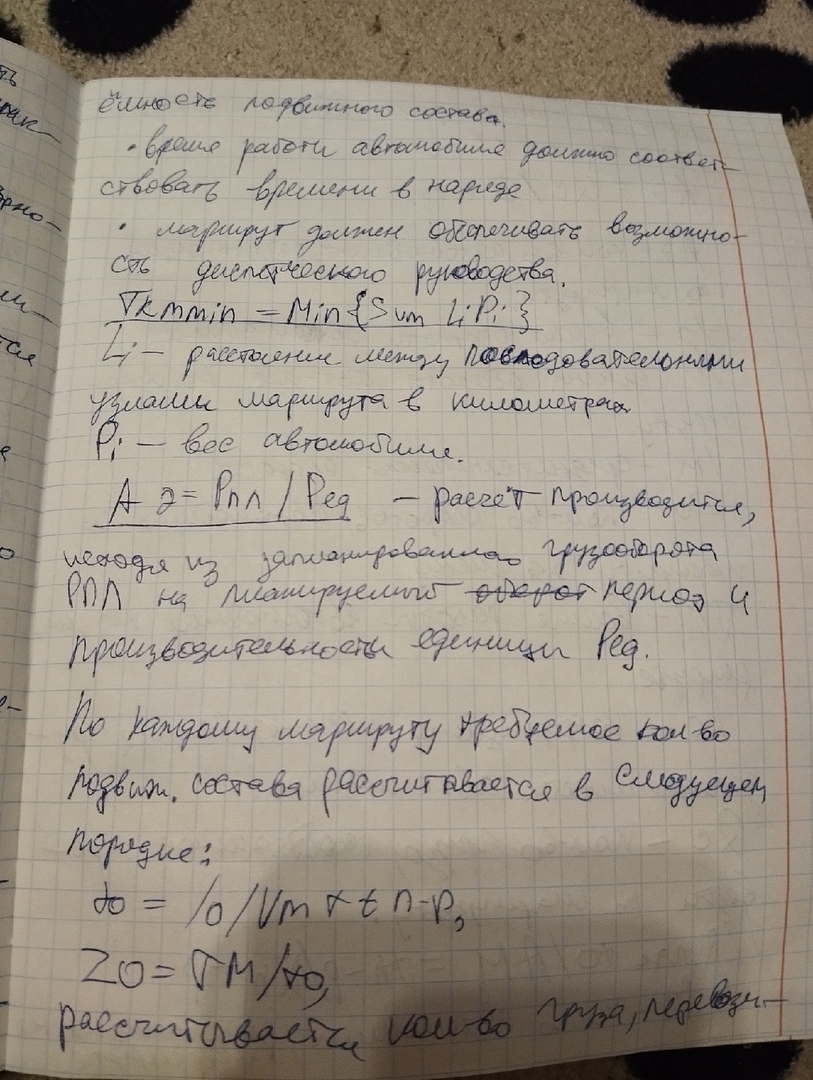 ёмность подвижного состава.
• время работы автомобиля должно соответ-
ствовать времени в наряде
• маршрут должен обеспечивать возможно-
сть диспетческого руководства.
Ткmmin = Min{Sum LiPi}
Li – расстояние между последовательными
узлами маршрута в километрах
Pi – вес автомобиля.
А э = Рпл / Ред – расчёт производится,
исходя из запланированного грузооборота
РПЛ на планируемый оборот период и
производительности единицы Ред.
По каждому маршруту требуемое кол-во
подвиж. состава рассчитывается в следующем
порядке:
to = lo/Vm + t п-р,
Zo = TM/to,
рассчитывается кол-во груза, перевози-